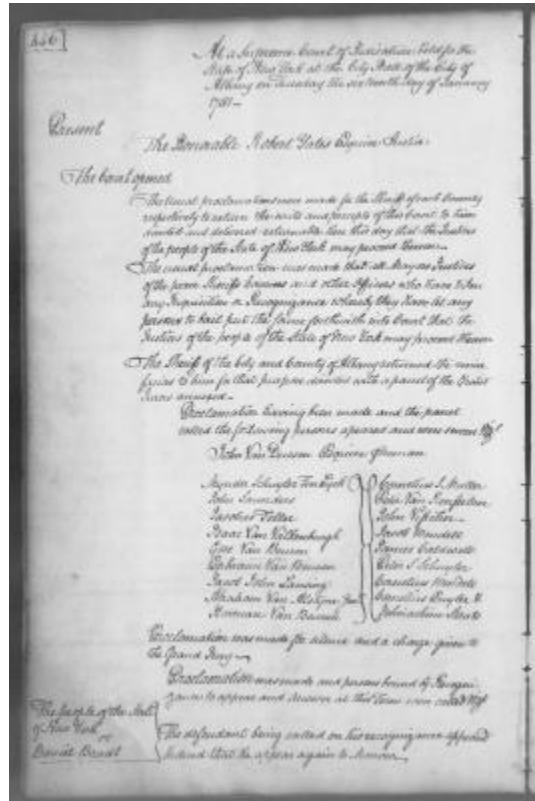 446]
At a Supreme Court of Judicature held for the
State of New York at the City Hall of the City of
Albany on Tuesday the sixteenth day of January
1781 —
Present
The Honorable Robert Yates Esquire Justice
The Court opened
The usual proclamations were made for the Sheriff of each County
respectively to return the writs and precepts of this Court to him
directed and delivered returnable here this day that the Justices
of the people of the State of New York may proceed thereon
The usual proclamation was made that all Mayors Justices
of the peace Sheriffs Coroners and other Officers who have taken
any Inquisition or Recognizance whereby they have let any
person to bail put the same forthwith into Court that the
Justices of the people of the State of New York may proceed thereon
The Sheriff of the City and County of Albany returned the venire
facias to him for that purpose directed with a panel of the Grand
Jurors annexed —
Proclamation having been made and the panel
called the following persons appeared and were sworn
John Van Esquire foreman
Schuyler Ten Eyck
John Saunders
Jacobus Teller
Isaac Van Valkenburgh
Van Buren
Ephraim Van
Jacob John Lansing
Abraham Van Alstyne
Harman Van
Cornelius J. Muller
Van Rensselaer
John Visscher
Jacob
James Caldwell
Peter S Schuyler
Cornelius
Cornelius
Johnathan
Proclamation was made for silence and a charge given to
the Grand Jury —
Proclamation was made and persons bound by Recogni-
zance to appear and answer at this Term were called
The People of the State
of New York
vs
David
The defendant being called on his recognizance appeared
Ordered that he appear again to Morrow